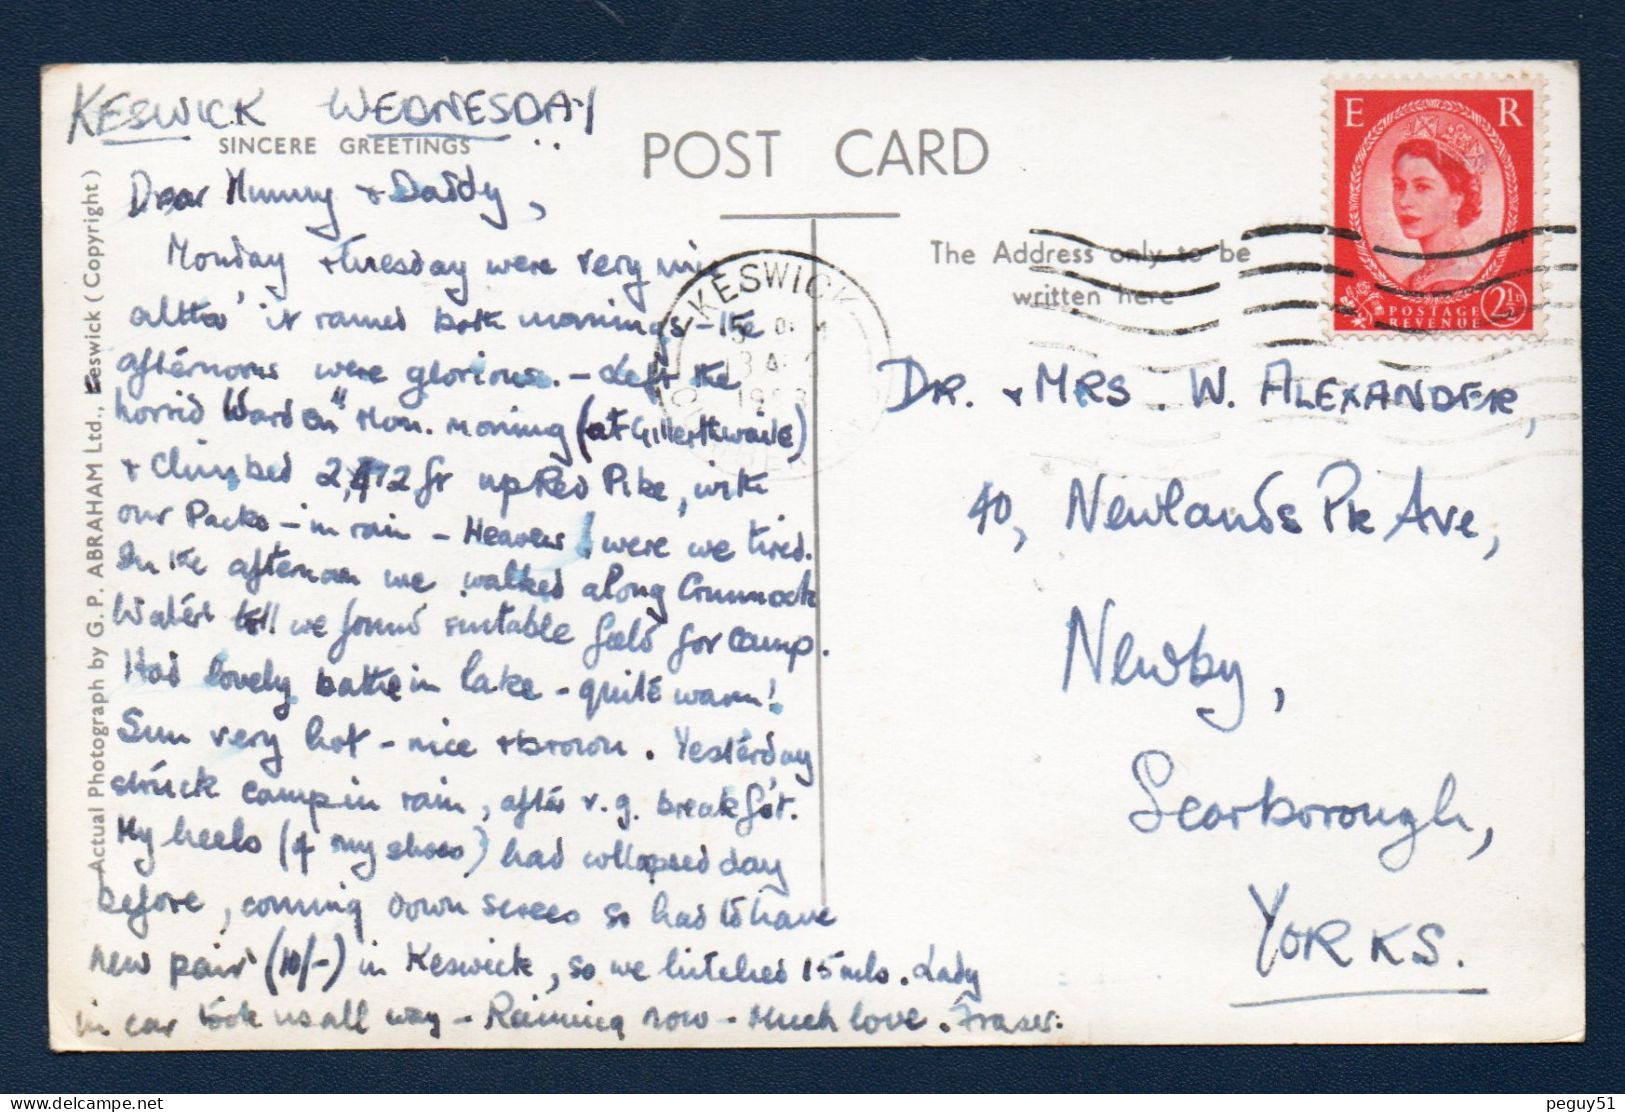 KESWICK WEDNESDAY
SINCERE GREETINGS
POST CARD
Dear Mummy + Daddy,
Monday + tuesday were very
altho' it rained both mornings - the
afternoons were glorious. - Left the
horrid "Warden" Mon. morning (at Gillerthwaite)
+ climbed 2,472 ft up Red Pike, with
our Packs - in rain - Heavens! were we tired.
In the afternoon we walked along Crummock
Water till we found suitable field for camp.
Had lovely bathe in lake - quite warm!
Sun very hot - nice + brown. Yesterday
struck camp in rain, after v.g. breakfast.
My heels (of my shoes) had collapsed day
before, coming down screes so had to have
new pair (10/-) in Keswick, so we hitched 15 mls. Lady
in car took us all way - Raining now - Much love. Fraser.
Actual Photograph by G. P. ABRAHAM Ltd., Keswick (Copyright)
The Address only to be
written here
KESWICK
E R
2½D
POSTAGE
REVENUE
DR. + MRS. W. ALEXANDER,
40, Newlands Pk Ave,
Newby,
Scarborough,
YORKS.
peguy51